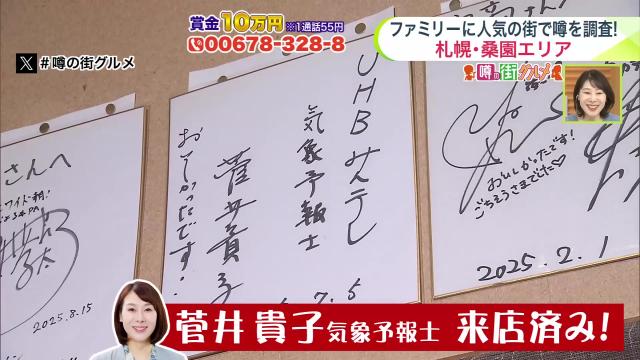 賞金10万円※1通話55円
00678-328-8
ファミリーに人気の街で噂を調査!
札幌・桑園エリア
噂の街グルメ
X #噂の街グルメ
さんへ
2025.8.15
UHB みんテレ
気象予報士
菅井貴子
おいしかったです!
7.5
おいしかったです!
ごちそうさまでした♡
2025.2.1
菅井貴子気象予報士 来店済み!